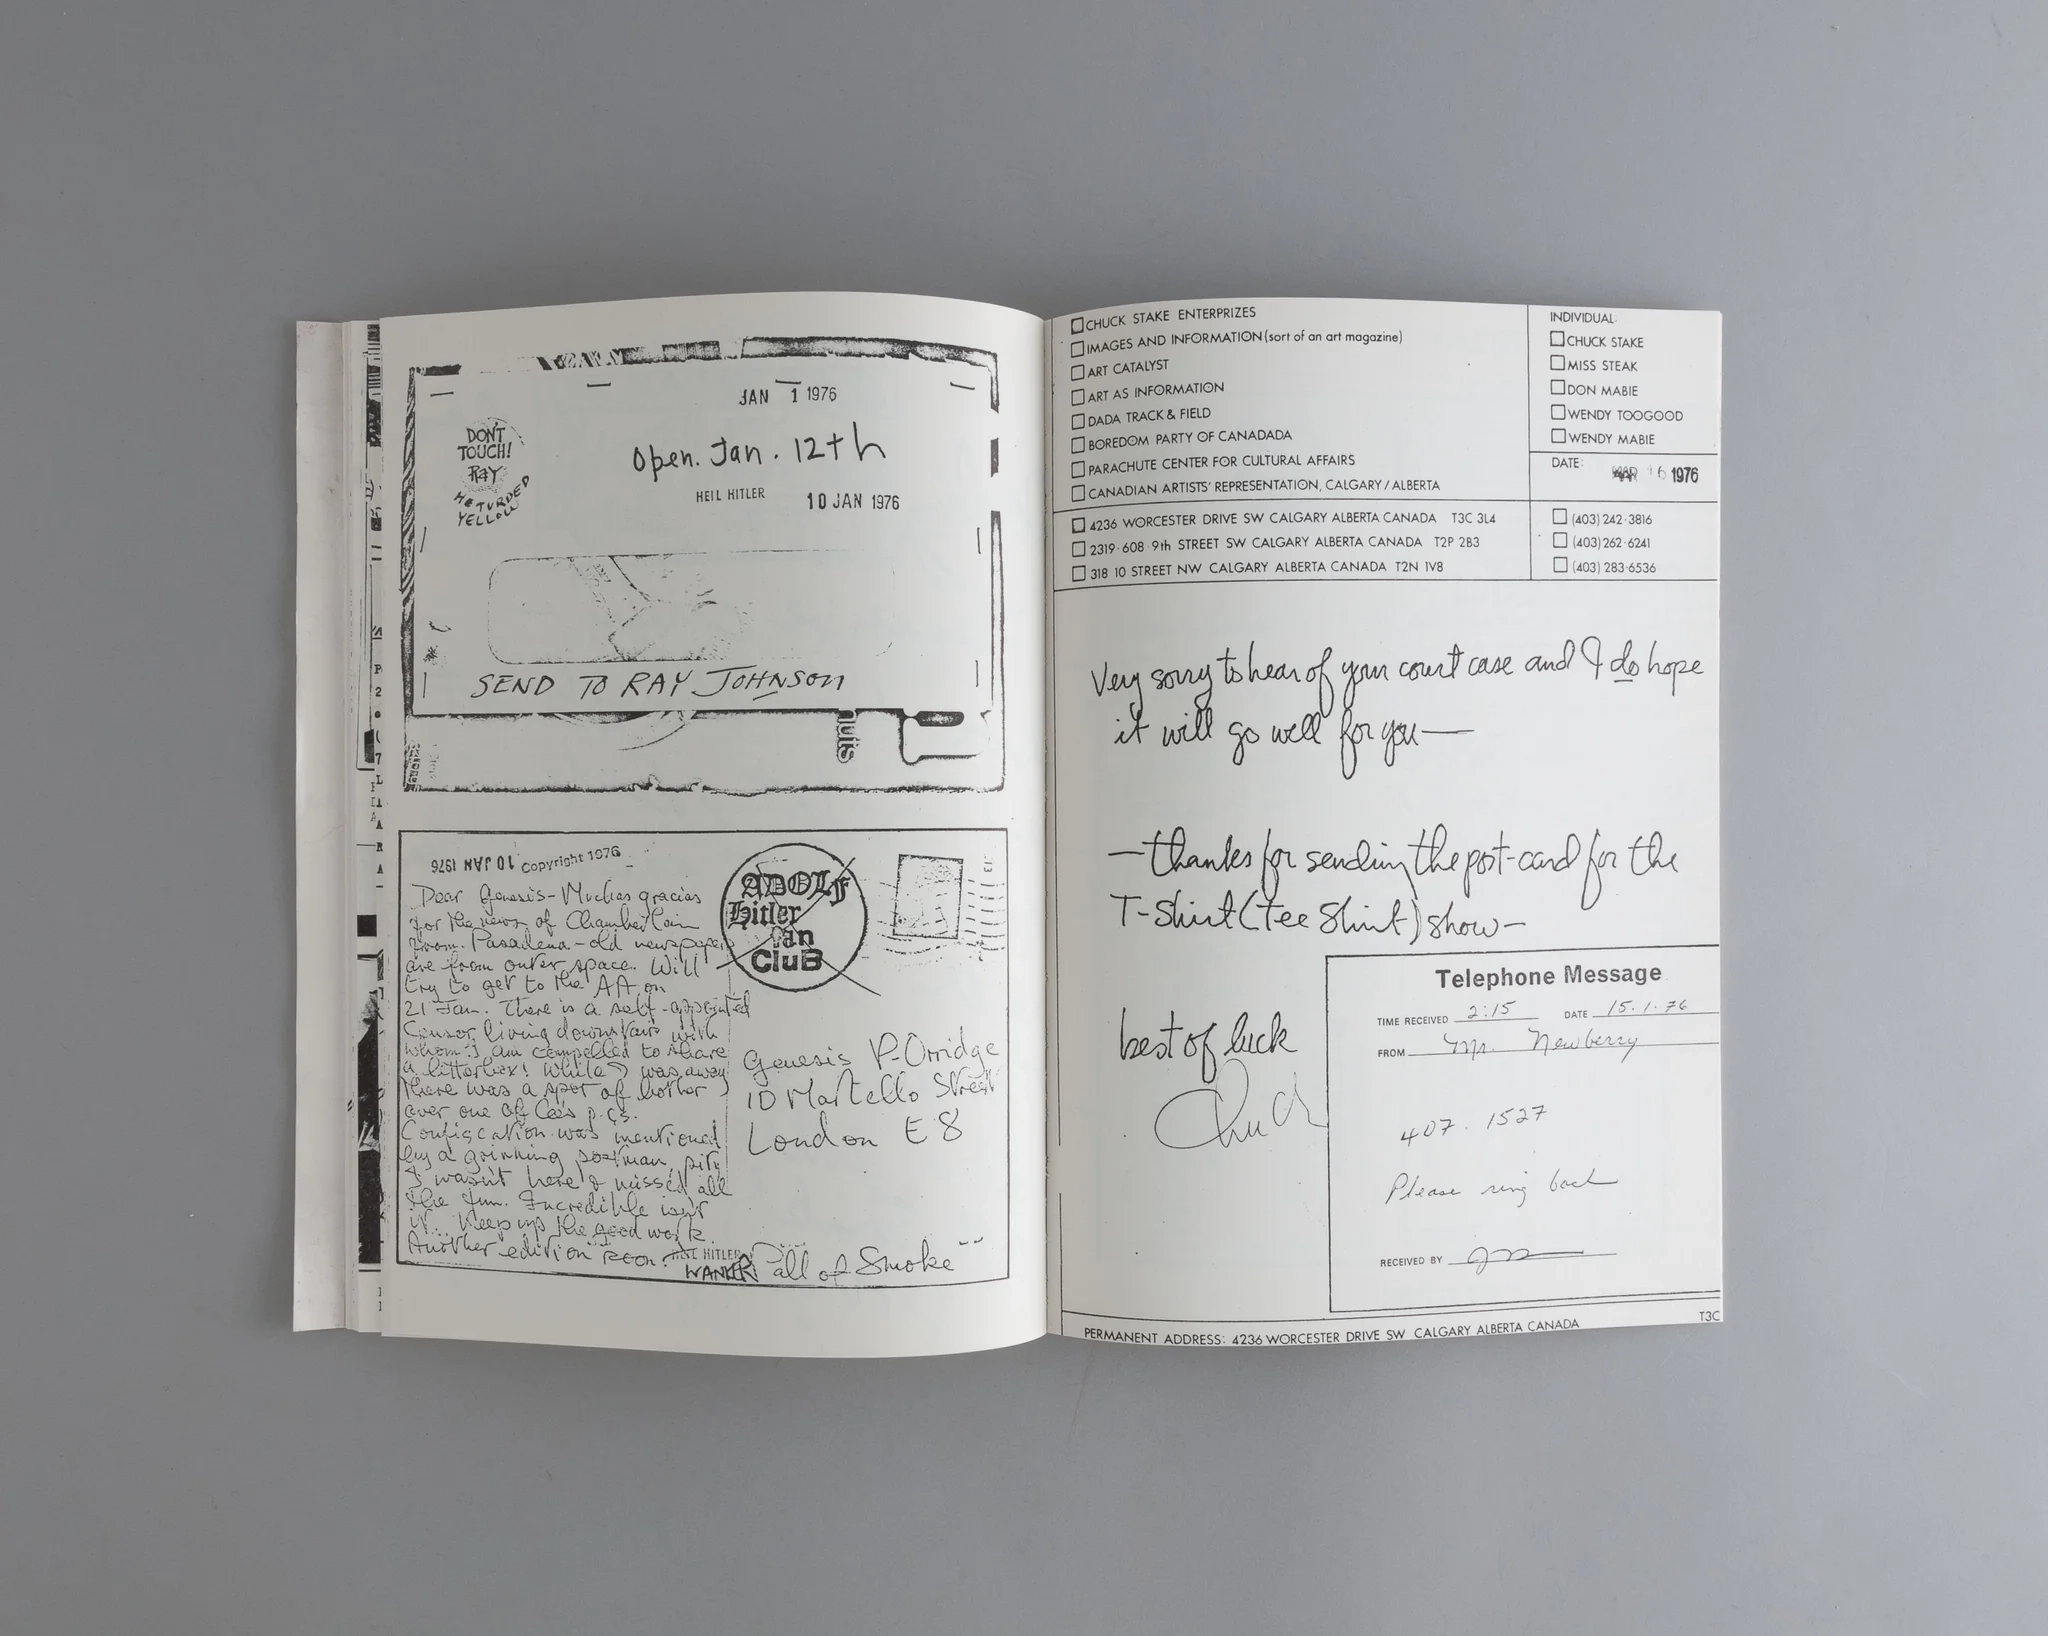 JAN 1 1976
DON'T
TOUCH!
RAY
RETURDED
YELLOW
Open. Jan. 12th
HEIL HITLER 10 JAN 1976
SEND TO RAY JOHNSON
nuts
10 JAN 1976 Copyright 1976
Dear Genesis - Muchas gracias
for the news of Chamberlain
from Pasadena - old newspapers
are from outer space. Will
try to get to the AA on
21 Jan. There is a self-appointed
Censor living downstairs with
whom I am compelled to share
a letterbox! While I was away
there was a spot of bother
over one of Cee's p.cs.
Confiscation was mentioned
by a grinning postman, pity
I wasn't here & missed all
the fun. Incredible isn't
it. Keep up the good work.
Another edition soon. HEIL HITLER
WANKER "Pall of Smoke"
ADOLF
Hitler
fan
CluB
Genesis P. Orridge
10 Martello Street
London E8
CHUCK STAKE ENTERPRIZES
IMAGES AND INFORMATION (sort of an art magazine)
ART CATALYST
ART AS INFORMATION
DADA TRACK & FIELD
BOREDOM PARTY OF CANADADA
PARACHUTE CENTER FOR CULTURAL AFFAIRS
CANADIAN ARTISTS' REPRESENTATION, CALGARY / ALBERTA
INDIVIDUAL:
CHUCK STAKE
MISS STEAK
DON MABIE
WENDY TOOGOOD
WENDY MABIE
DATE: MAR 16 1976
4236 WORCESTER DRIVE SW CALGARY ALBERTA CANADA T3C 3L4
2319·608·9th STREET SW CALGARY ALBERTA CANADA T2P 2B3
318 10 STREET NW CALGARY ALBERTA CANADA T2N 1V8
(403) 242·3816
(403) 262·6241
(403) 283·6536
Very sorry to hear of your court case and I do hope
it will go well for you—
—thanks for sending the post-card for the
T-Shirt (Tee Shirt) show—
best of luck
Chuck
Telephone Message
TIME RECEIVED 2:15 DATE 15.1.76
FROM Mr. Newberry
407. 1527
Please ring back
RECEIVED BY
PERMANENT ADDRESS: 4236 WORCESTER DRIVE SW CALGARY ALBERTA CANADA T3C